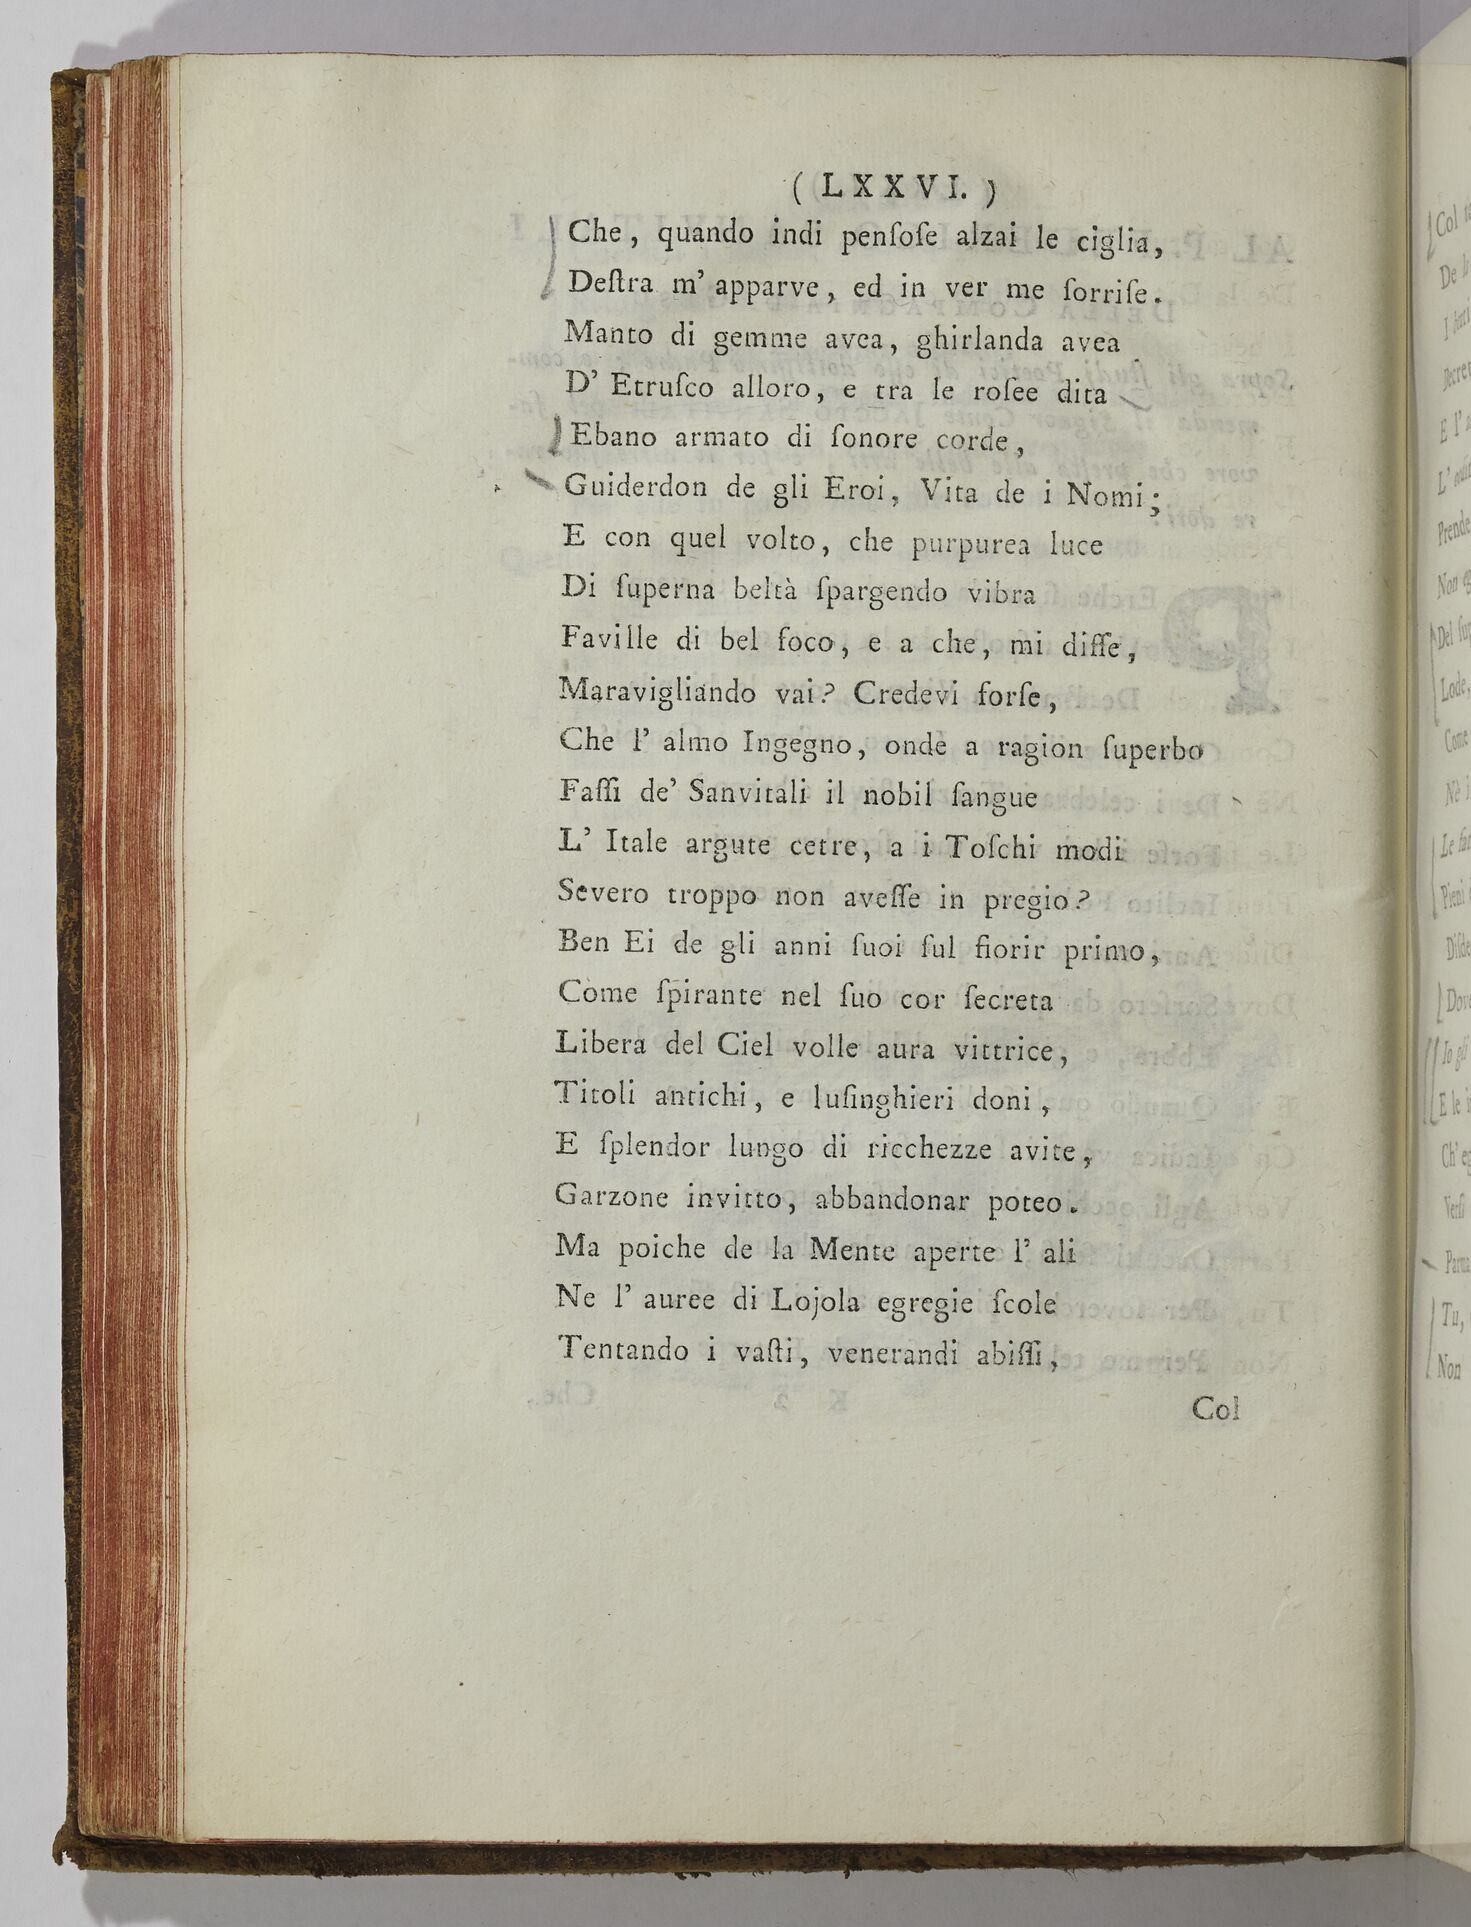 ( LXXVI. )
Che, quando indi penſoſe alzai le ciglia,
Deſtra m' apparve, ed in ver me ſorriſe.
Manto di gemme avea, ghirlanda avea
D' Etruſco alloro, e tra le roſee dita
Ebano armato di ſonore corde,
Guiderdon de gli Eroi, Vita de i Nomi;
E con quel volto, che purpurea luce
Di ſuperna beltà ſpargendo vibra
Faville di bel foco, e a che, mi diſſe,
Maravigliando vai? Credevi forſe,
Che l' almo Ingegno, onde a ragion ſuperbo
Faſſi de' Sanvitali il nobil ſangue
L' Itale argute cetre, a i Toſchi modi
Severo troppo non aveſſe in pregio?
Ben Ei de gli anni ſuoi ſul fiorir primo,
Come ſpirante nel ſuo cor ſecreta
Libera del Ciel volle aura vittrice,
Titoli antichi, e luſinghieri doni,
E ſplendor lungo di ricchezze avite,
Garzone invitto, abbandonar poteo.
Ma poiche de la Mente aperte l' ali
Ne l' auree di Lojola egregie ſcole
Tentando i vaſti, venerandi abiſſi,
Col
Col
De
Prende
Non
Del
Lode,
Come
Nè
Le
Pieni
Io gli
E le
Tu,
Non